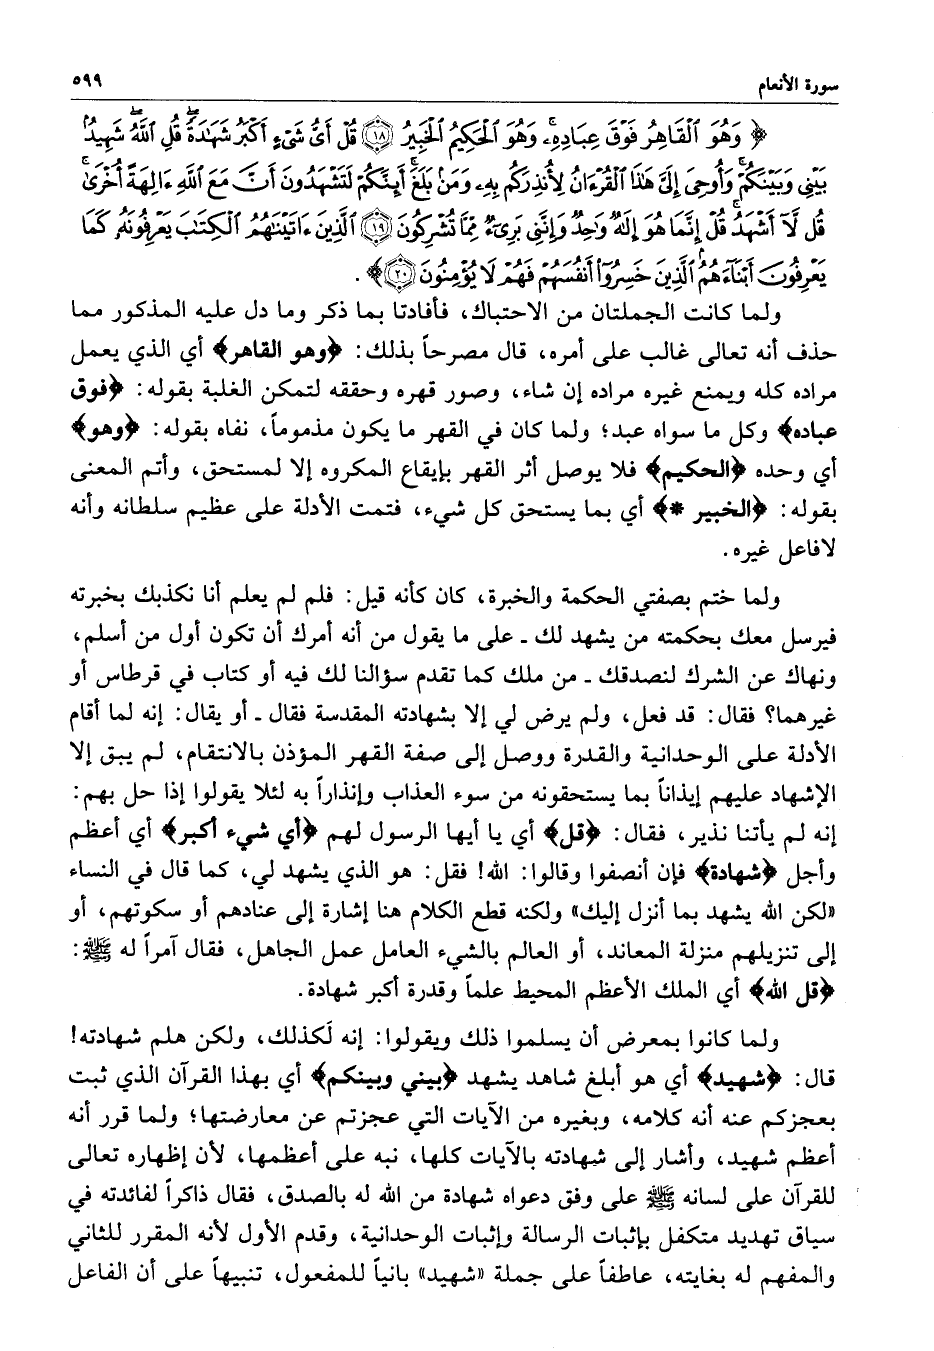 سورة الأنعام ٥٩٩
﴿ وَهُوَ ٱلْقَاهِرُ فَوْقَ عِبَادِهِۦۚ وَهُوَ ٱلْحَكِيمُ ٱلْخَبِيرُ ۝١٨ قُلْ أَىُّ شَىْءٍ أَكْبَرُ شَهَٰدَةًۖ قُلِ ٱللَّهُۖ شَهِيدٌۢ
بَيْنِى وَبَيْنَكُمْۚ وَأُوحِىَ إِلَىَّ هَٰذَا ٱلْقُرْءَانُ لِأُنذِرَكُم بِهِۦ وَمَنۢ بَلَغَۚ أَئِنَّكُمْ لَتَشْهَدُونَ أَنَّ مَعَ ٱللَّهِ ءَالِهَةً أُخْرَىٰۚ
قُل لَّآ أَشْهَدُۚ قُلْ إِنَّمَا هُوَ إِلَٰهٌ وَٰحِدٌ وَإِنَّنِى بَرِىٓءٌ مِّمَّا تُشْرِكُونَ ۝١٩ ٱلَّذِينَ ءَاتَيْنَٰهُمُ ٱلْكِتَٰبَ يَعْرِفُونَهُۥ كَمَا
يَعْرِفُونَ أَبْنَآءَهُمُۘ ٱلَّذِينَ خَسِرُوٓا۟ أَنفُسَهُمْ فَهُمْ لَا يُؤْمِنُونَ ۝٢٠﴾ .
ولما كانت الجملتان من الاحتباك، فأفادتا بما ذكر وما دل عليه المذكور مما
حذف أنه تعالى غالب على أمره، قال مصرحاً بذلك: ﴿وهو القاهر﴾ أي الذي يعمل
مراده كله ويمنع غيره مراده إن شاء، وصور قهره وحققه لتمكن الغلبة بقوله: ﴿فوق
عباده﴾ وكل ما سواه عبد؛ ولما كان في القهر ما يكون مذموماً، نفاه بقوله: ﴿وهو﴾
أي وحده ﴿الحكيم﴾ فلا يوصل أثر القهر بإيقاع المكروه إلا لمستحق، وأتم المعنى
بقوله: ﴿الخبير *﴾ أي بما يستحق كل شيء، فتمت الأدلة على عظيم سلطانه وأنه
لافاعل غيره.
ولما ختم بصفتي الحكمة والخبرة، كان كأنه قيل: فلم لم يعلم أنا نكذبك بخبرته
فيرسل معك بحكمته من يشهد لك ـ على ما يقول من أنه أمرك أن تكون أول من أسلم،
ونهاك عن الشرك لنصدقك ـ من ملك كما تقدم سؤالنا لك فيه أو كتاب في قرطاس أو
غيرهما؟ فقال: قد فعل، ولم يرض لي إلا بشهادته المقدسة فقال ـ أو يقال: إنه لما أقام
الأدلة على الوحدانية والقدرة ووصل إلى صفة القهر المؤذن بالانتقام، لم يبق إلا
الإشهاد عليهم إيذاناً بما يستحقونه من سوء العذاب وإنذاراً به لئلا يقولوا إذا حل بهم:
إنه لم يأتنا نذير، فقال: ﴿قل﴾ أي يا أيها الرسول لهم ﴿أي شيء أكبر﴾ أي أعظم
وأجل ﴿شهادة﴾ فإن أنصفوا وقالوا: الله! فقل: هو الذي يشهد لي، كما قال في النساء
«لكن الله يشهد بما أنزل إليك» ولكنه قطع الكلام هنا إشارة إلى عنادهم أو سكوتهم، أو
إلى تنزيلهم منزلة المعاند، أو العالم بالشيء العامل عمل الجاهل، فقال آمراً له ﷺ:
﴿قل الله﴾ أي الملك الأعظم المحيط علماً وقدرة أكبر شهادة.
ولما كانوا بمعرض أن يسلموا ذلك ويقولوا: إنه لَكذلك، ولكن هلم شهادته!
قال: ﴿شهيد﴾ أي هو أبلغ شاهد يشهد ﴿بيني وبينكم﴾ أي بهذا القرآن الذي ثبت
بعجزكم عنه أنه كلامه، وبغيره من الآيات التي عجزتم عن معارضتها؛ ولما قرر أنه
أعظم شهيد، وأشار إلى شهادته بالآيات كلها، نبه على أعظمها، لأن إظهاره تعالى
للقرآن على لسانه ﷺ على وفق دعواه شهادة من الله له بالصدق، فقال ذاكراً لفائدته في
سياق تهديد متكفل بإثبات الرسالة وإثبات الوحدانية، وقدم الأول لأنه المقرر للثاني
والمفهم له بغايته، عاطفاً على جملة «شهيد» بانياً للمفعول، تنبيهاً على أن الفاعل